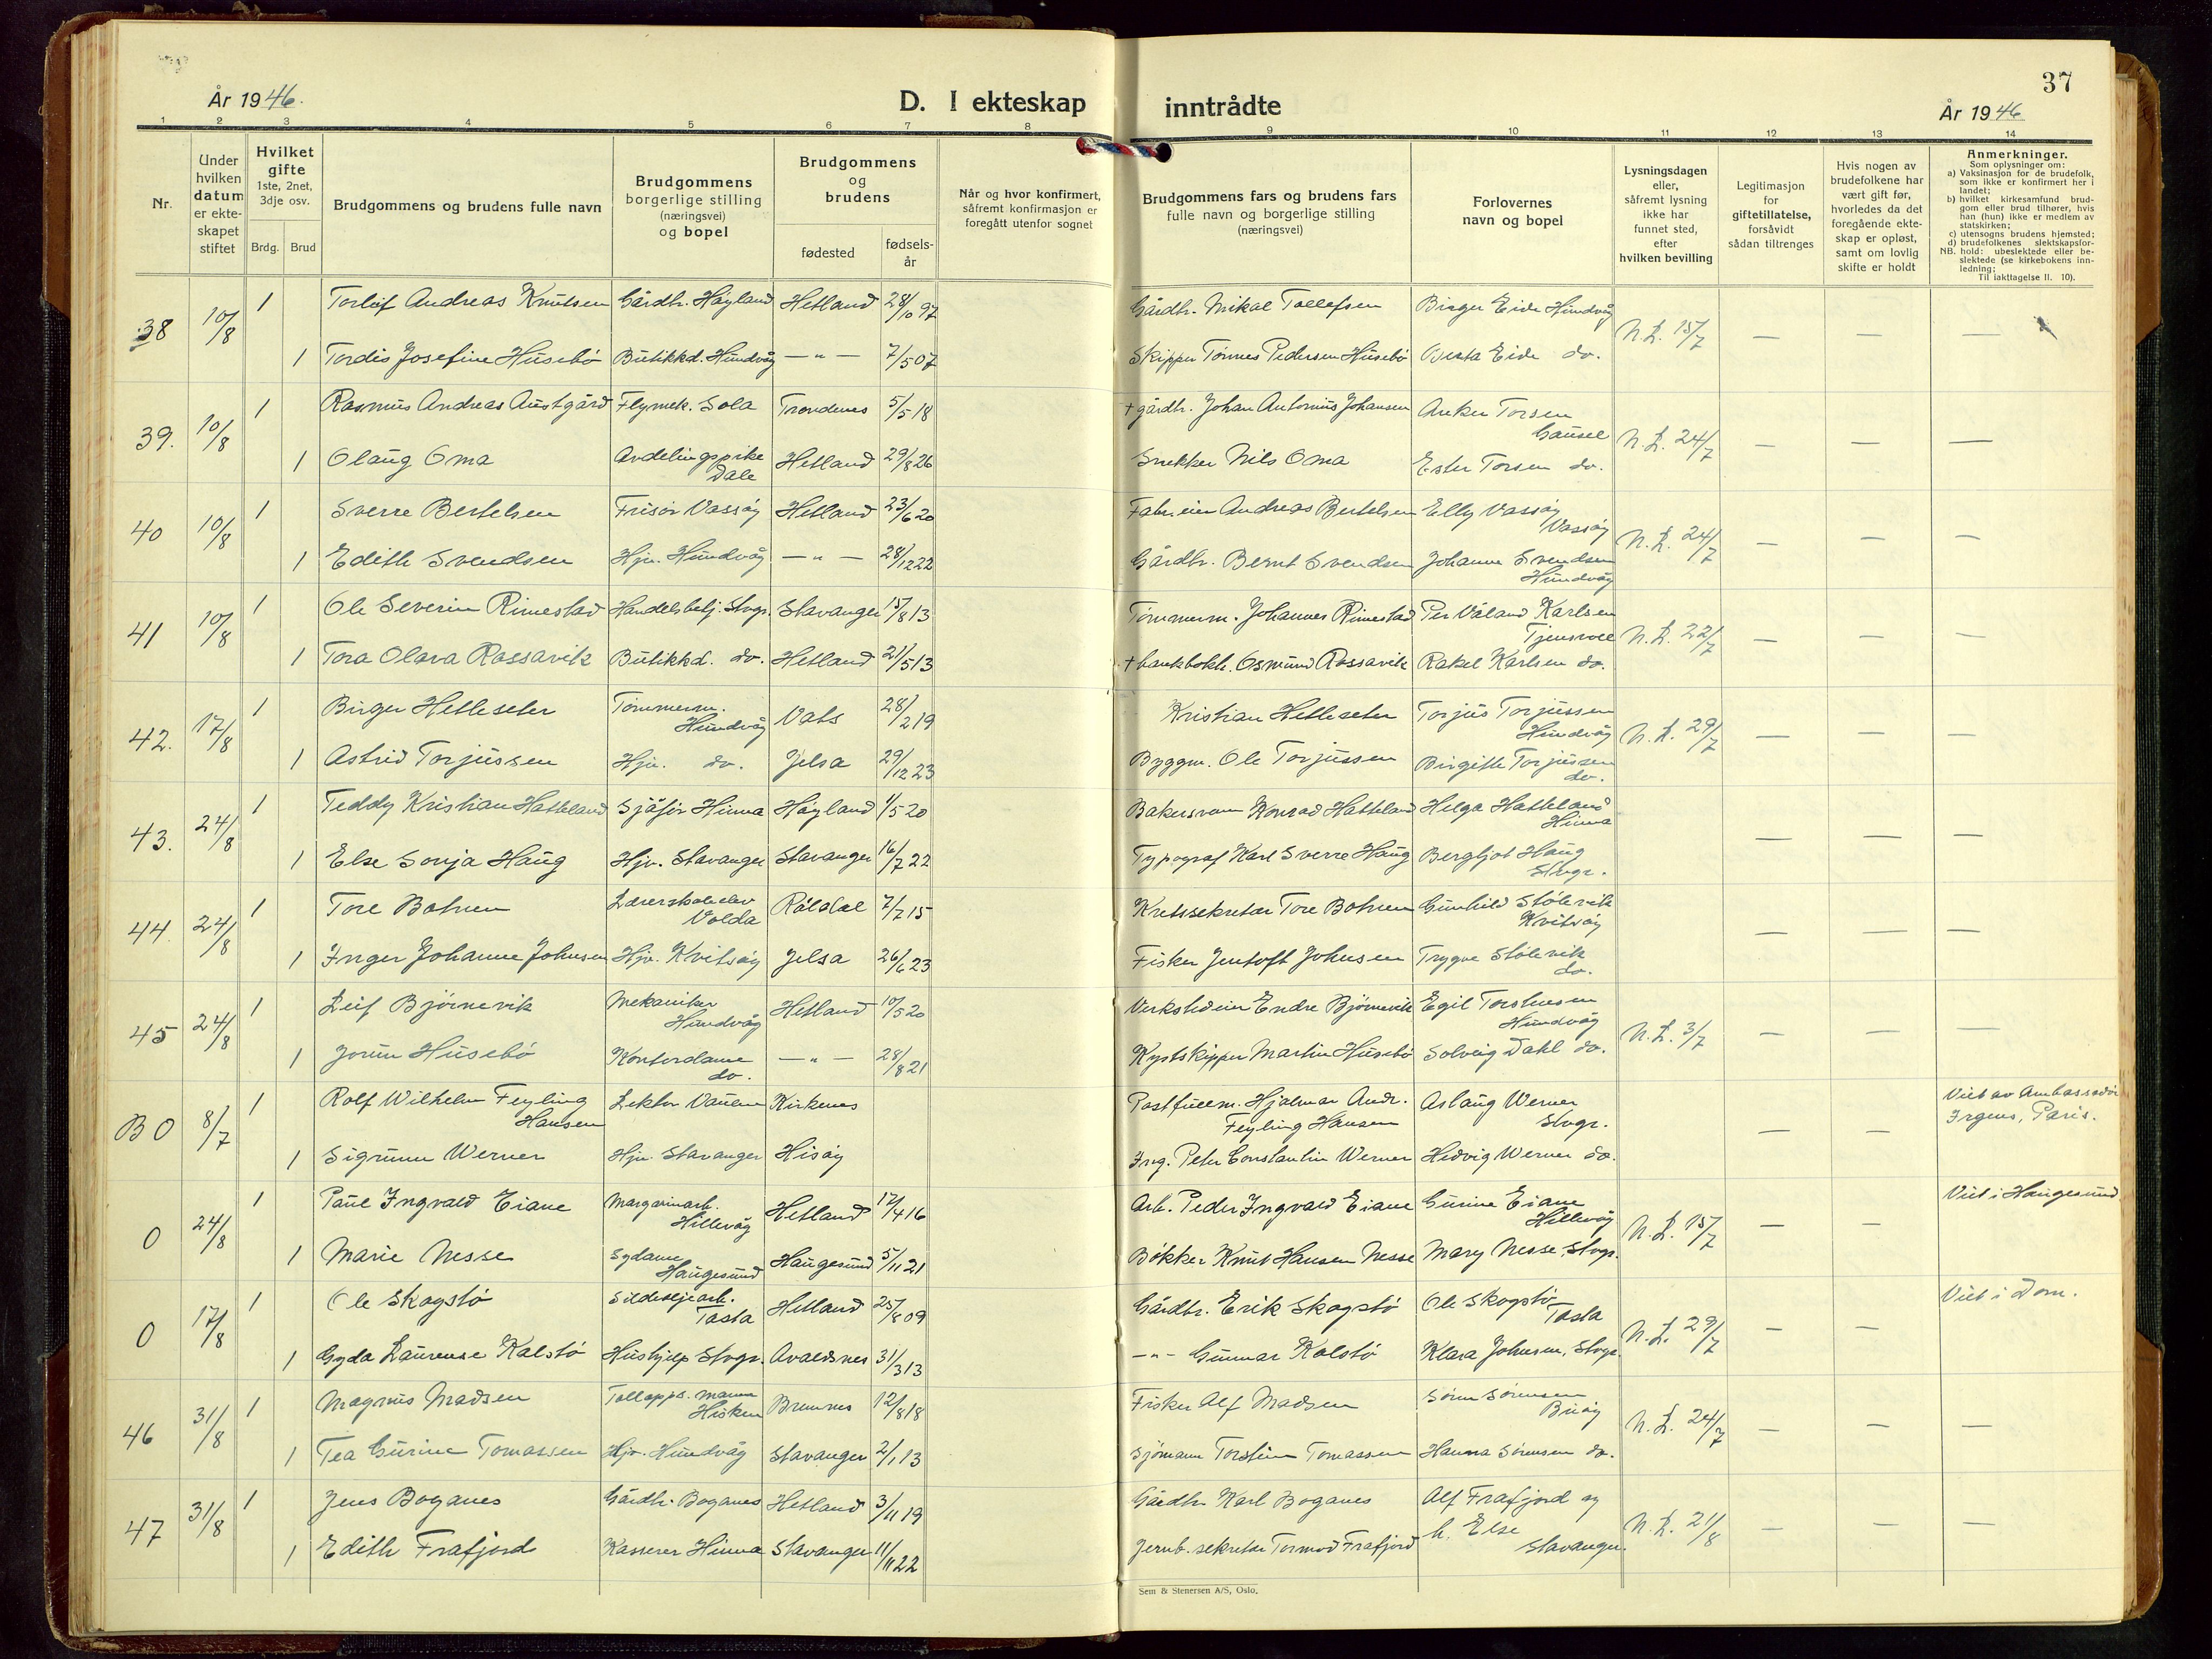 37
År 1946.
D. I ekteskap inntrådte
År 1946
1 2 3 4 5 6 7 8 9 10 11 12 13 14
Nr.
Under hvilken datum er ekteskapet stiftet
Hvilket gifte 1ste, 2net, 3dje osv.
Brdg. Brud
Brudgommens og brudens fulle navn
Brudgommens borgerlige stilling (næringsvei) og bopel
Brudgommens og brudens
fødested
fødsels-år
Når og hvor konfirmert, såfremt konfirmasjon er foregått utenfor sognet
Brudgommens fars og brudens fars fulle navn og borgerlige stilling (næringsvei)
Forlovernes navn og bopel
Lysningsdagen eller, såfremt lysning ikke har funnet sted, efter hvilken bevilling
Legitimasjon for giftetillatelse, forsåvidt sådan tiltrenges
Hvis nogen av brudefolkene har vært gift før, hvorledes da det foregående ekteskap er opløst, samt om lovlig skifte er holdt
Anmerkninger.
Som oplysninger om:
a) Vaksinasjon for de brudefolk, som ikke er konfirmert her i landet;
b) hvilket kirkesamfund brudgom eller brud tilhører, hvis han (hun) ikke er medlem av statskirken;
c) utensogns brudens hjemsted;
d) brudefolkenes slektskapsforhold: ubeslektede eller beslektede (se kirkebokens innledning;
NB. Til iakttagelse II. 10).
38 10/8 1 Torleif Andreas Knutsen Gårdbr. Høyland Hetland 28/10 97 Gårdbr. Mikal Tollefsen Birger Eide Hundvåg N.L. 15/7 — — —
1 Tordis Josefine Husebø Butikkd. Hundvåg — " — 7/5 07 Skipper Tønnes Pedersen Husebø Berta Eide do.
39. 10/8 1 Rasmus Andreas Austgård Flymek. Sola Trondenes 5/5 18 + gårdbr. Johan Antonius Johansen Anker Torsen Gausel N.L. 24/7 — — —
1 Olaug Oma Avdelingspike Dale Hetland 29/8 26 Snekker Nils Oma Ester Torsen do.
40 10/8 1 Sverre Bertelsen Frisør Vassøy Hetland 23/6 20 Fabr.eier Andreas Bertelsen Elly Vassøy Vassøy N.L. 24/7 — — —
1 Edith Svendsen Hjv. Hundvåg — " — 28/12 22 Gårdbr. Bernt Svendsen Johanne Svendsen Hundvåg
41 10/8 1 Ole Severin Rimestad Handelsbetj. Stvgr. Stavanger 15/8 13 Tømmerm. Johannes Rimestad Per Våland Karlsen Tjensvoll N.L. 22/7 — — —
1 Tora Olava Rossavik Butikkd. do. Hetland 21/5 13 + bankbokh. Osmund Rossavik Rakel Karlsen do.
42. 17/8 1 Birger Hetleseter Tømmerm. Hundvåg Vats 28/2 19 Kristian Hetleseter Torjus Torjussen Hundvåg N.L. 29/7 — — —
1 Astrid Torjussen Hjv. do. Jelsa 29/12 23 Byggm. Ole Torjussen Birgith Torjussen do.
43. 24/8 1 Teddy Kristian Hatteland Sjåfør Hinna Høyland 1/5 20 Bakersvenn Konrad Hatteland Helga Hatteland Hinna — — —
1 Else Sonja Haug Hjv. Stavanger Stavanger 16/7 22 Typograf Karl Sverre Haug Bergljot Haug Stvgr.
44. 24/8 1 Tore Botnen Lærerskoleelev Volda Røldal 7/7 15 Kretssekretær Tore Botnen Gunhild Stölevik Kvitsøy — — —
1 Inger Johanne Johnsen Hjv. Kvitsøy Jelsa 26/6 23 Fisker Jentoft Johnsen Trygve Stölevik do.
45 24/8 1 Leif Bjørnevik Mekaniker Hundvåg Hetland 10/5 20 Verkstedeier Endre Bjørnevik Egil Torstensen Hundvåg N.L. 3/7 — — —
1 Jorun Husebø Kontordame do. — " — 28/8 21 Kystskipper Martin Husebø Solveig Dahl do.
BO 8/7 1 Rolf Wilhelm Feyling Hansen Lektor Kirkenes Postfullm. Hjalmar Andr. Feyling Hansen Aslaug Werner Stvgr. — — Viet av Ambassadør Irgens, Paris.
1 Sigrunn Werner Hjv. Stavanger Hisøy Ing. Peter Constantin Werner Hedvig Werner do.
O 24/8 1 Paul Ingvald Eiane Margarinarb. Hillevåg Hetland 17/4 16 Arb. Peder Ingvald Eiane Gurine Eiane Hillevåg N.L. 15/7 — — Viet i Haugesund
1 Marie Nesse Sydame Haugesund Haugesund 5/11 21 Bøkker Knut Hansen Nesse Mary Nesse, Stvgr.
O 17/8 1 Ole Skogstø Sildoljearb. Tasta Hetland 25/8 09 Gårdbr. Erik Skogstø Ole Skogstø Tasta N.L. 29/7 — — Viet i Dom.
1 Gyda Laurense Kalstø Hushjelp Stvgr. Avaldsnes 31/3 13 — " — Gunnar Kalstø Klara Johnsen, Stvgr.
46 31/8 1 Magnus Madsen Tollopps.mann Hisken Bremnes 12/8 18 Fisker Alf Madsen Søren Sørensen Buøy N.L. 24/7 — — —
1 Tea Gurine Tomassen Hjv. Hundvåg Stavanger 2/1 13 Sjømann Torstein Tomassen Hanna Sørensen do.
47 31/8 1 Jens Boganes Gårdbr. Boganes Hetland 3/11 19 Gårdbr. Karl Boganes Alf Frafjord og N.L. 21/8 — — —
1 Edith Frafjord Kasserer Hinna Stavanger 11/11 22 Jernb. sekretær Tormod Frafjord h. Else Stavanger.
Sem & Stenersen A/S, Oslo.